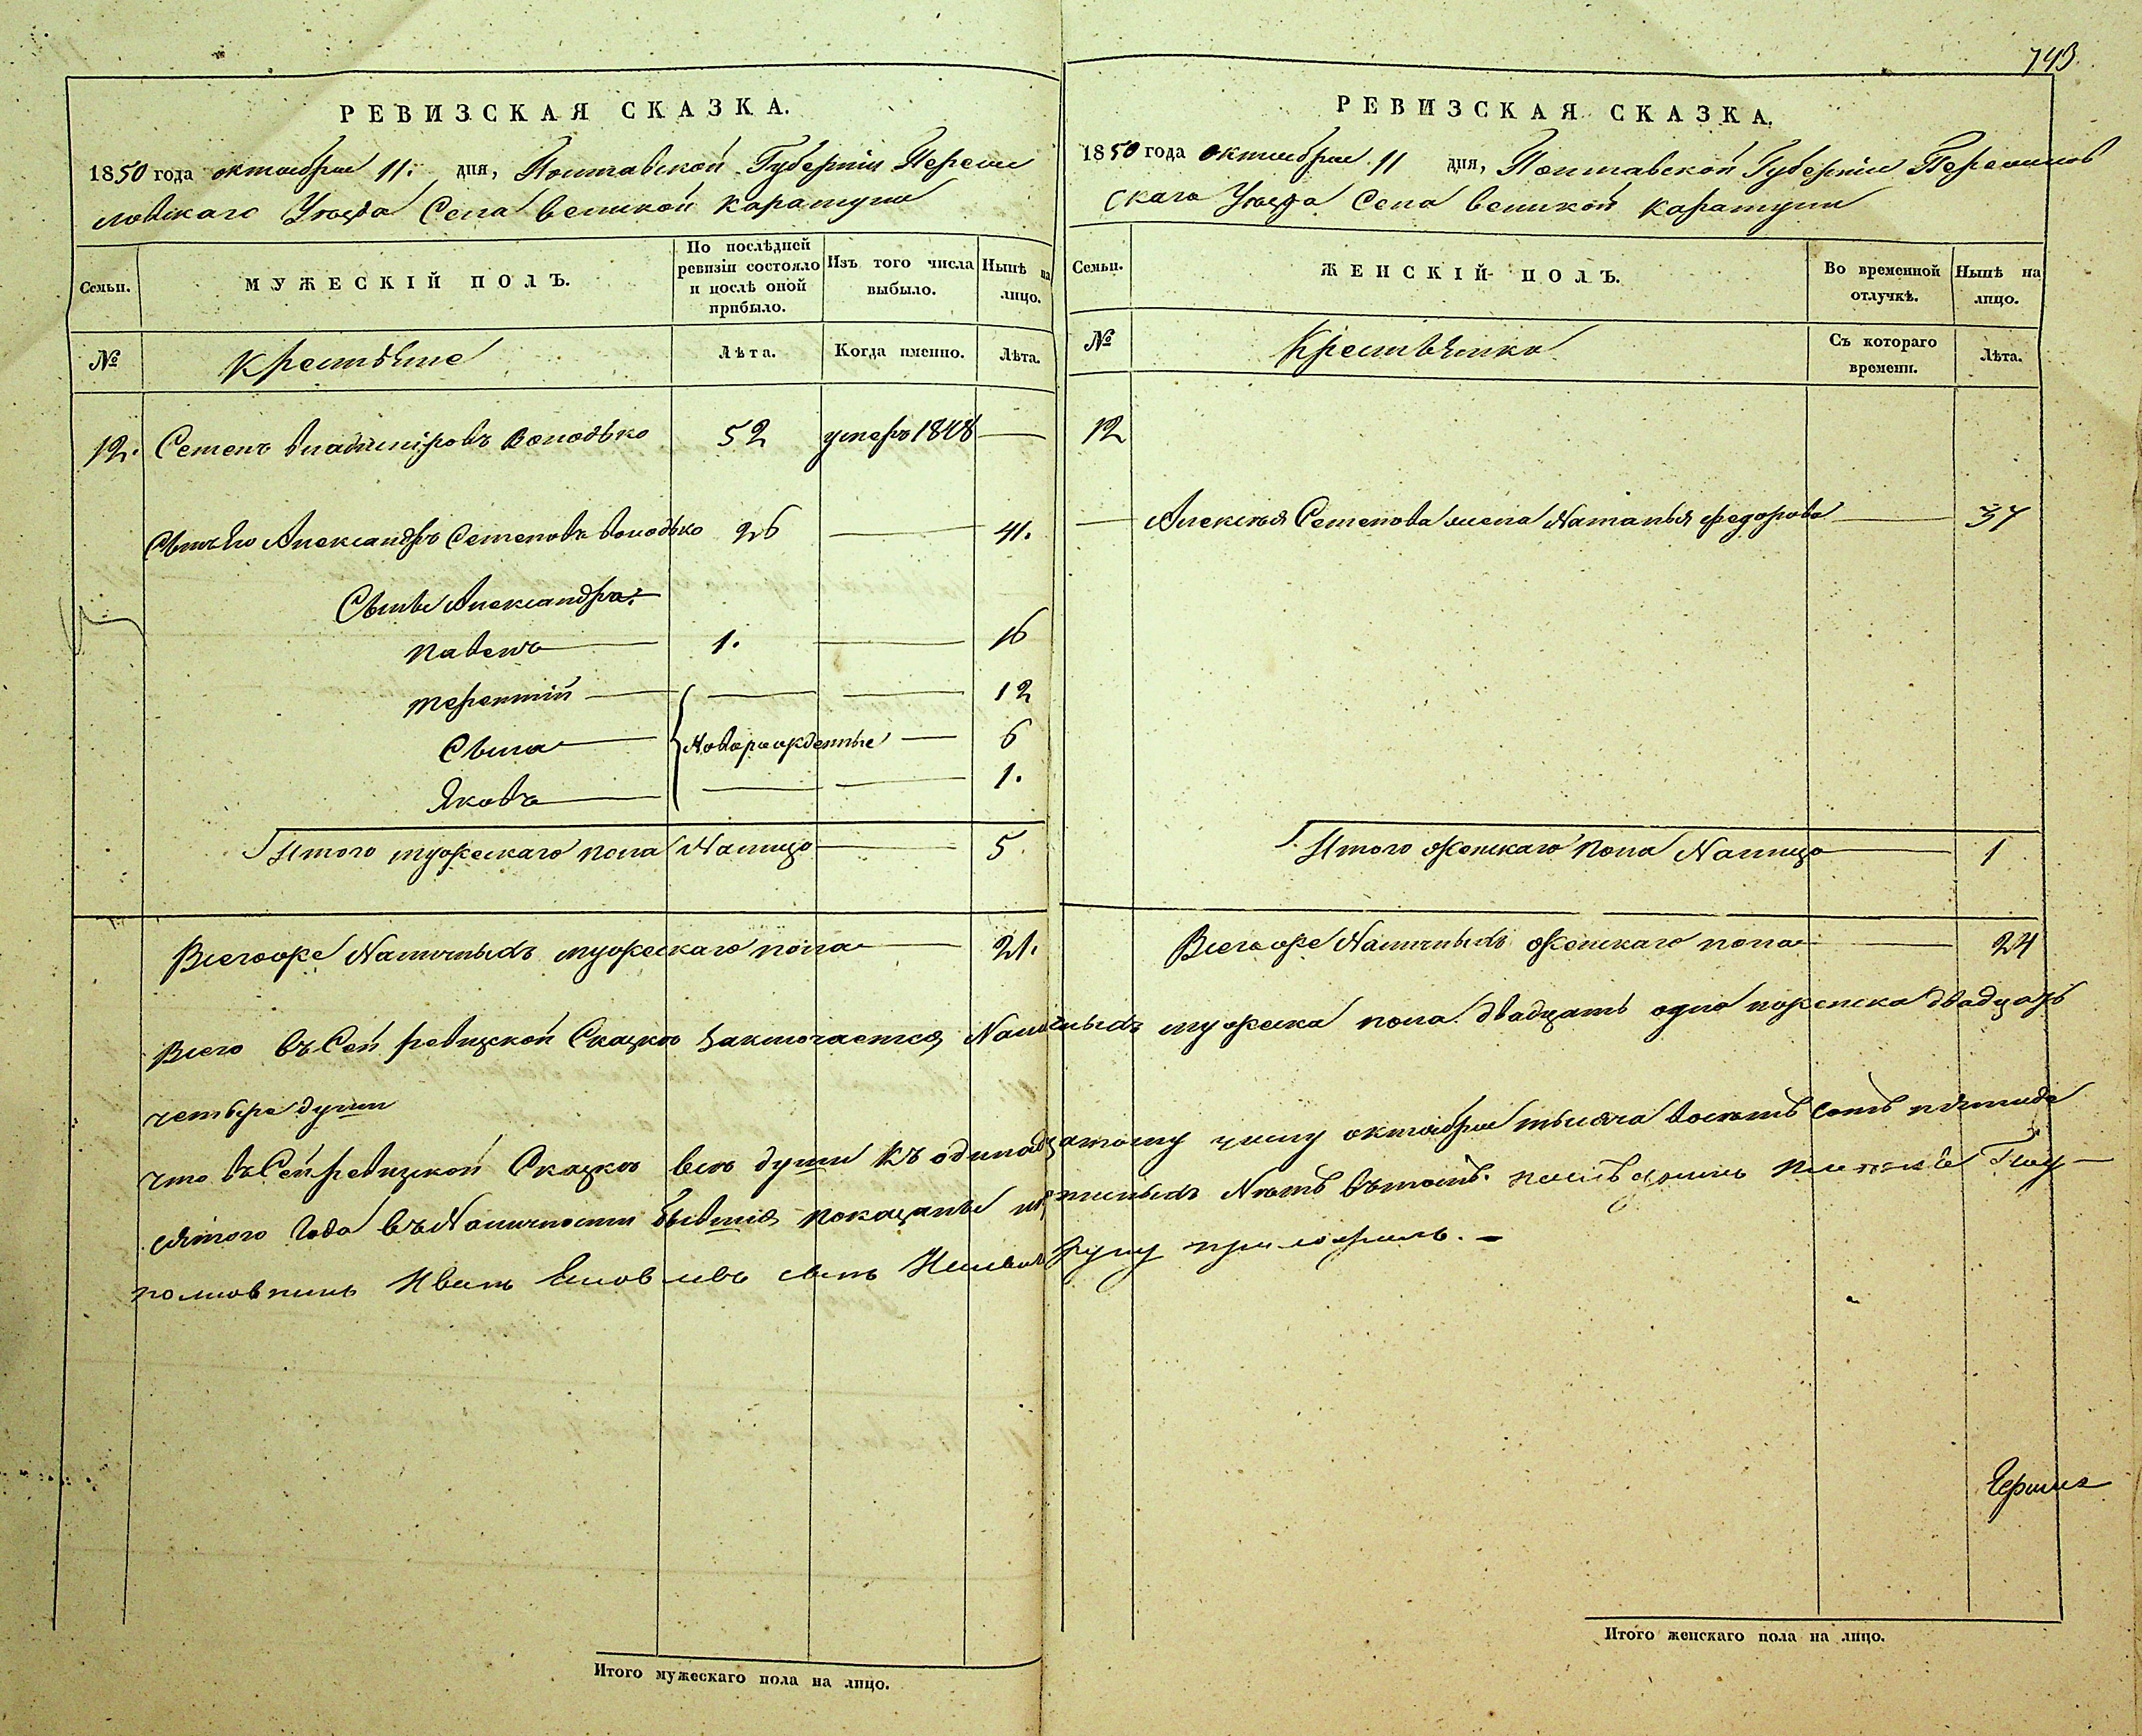 743.
РЕВИЗСКАЯ СКАЗКА.
1850 года октября 11. дня, Полтавской Губерніи Переяс
ловскаго Уѣзда Села великой каратули
Семьи.
МУЖЕСКІЙ ПОЛЪ.
По послѣдней ревизіи состояло и послѣ оной прибыло.
Изъ того числа выбыло.
Нынѣ на лицо.
№
крестьяне
Лѣта.
Когда именно.
Лѣта.
12. Семенъ владиміровъ володько 52 умеръ 1848 —
Сынъ Его Александръ Семеновъ володько 26 — 41.
Сыны Александра:
павелъ — 1. — 16
терентій — — — 12
Сыла — Новорожденные — 6
Яковъ — — — 1.
Итого мужескаго пола Налицо — 5
Всегоже Наличныхъ мужескаго пола — 21.
РЕВИЗСКАЯ СКАЗКА.
1850 года октября 11 дня, Полтавской Губерніи Переяслов
скаго Уѣзда Села великой каратули
Семьи.
ЖЕНСКІЙ ПОЛЪ.
Во временной отлучкѣ.
Нынѣ на лицо.
№
Крестьянки
Съ котораго времени.
Лѣта.
12
— Алексѣя Семенова жена Наталья федорова — 37
Итого женскаго пола Налицо — 1
Всегоже Наличныхъ женскаго пола — 24
Всего въ Сей ревизкой Сказкѣ заключается Наличныхъ мужеска пола двадцать одна поженска двадцать
четыре души
что въ Сей ревизкой Сказкѣ всѣ души къ одинадцатому числу октября тысяча восемь сотъ пятиде
сятого Года въ Наличности бывшія показаны и Нѣтъ въ томъ
Иванъ сынъ руку приложилъ. —
Итого мужескаго пола на лицо.
Итого женскаго пола на лицо.